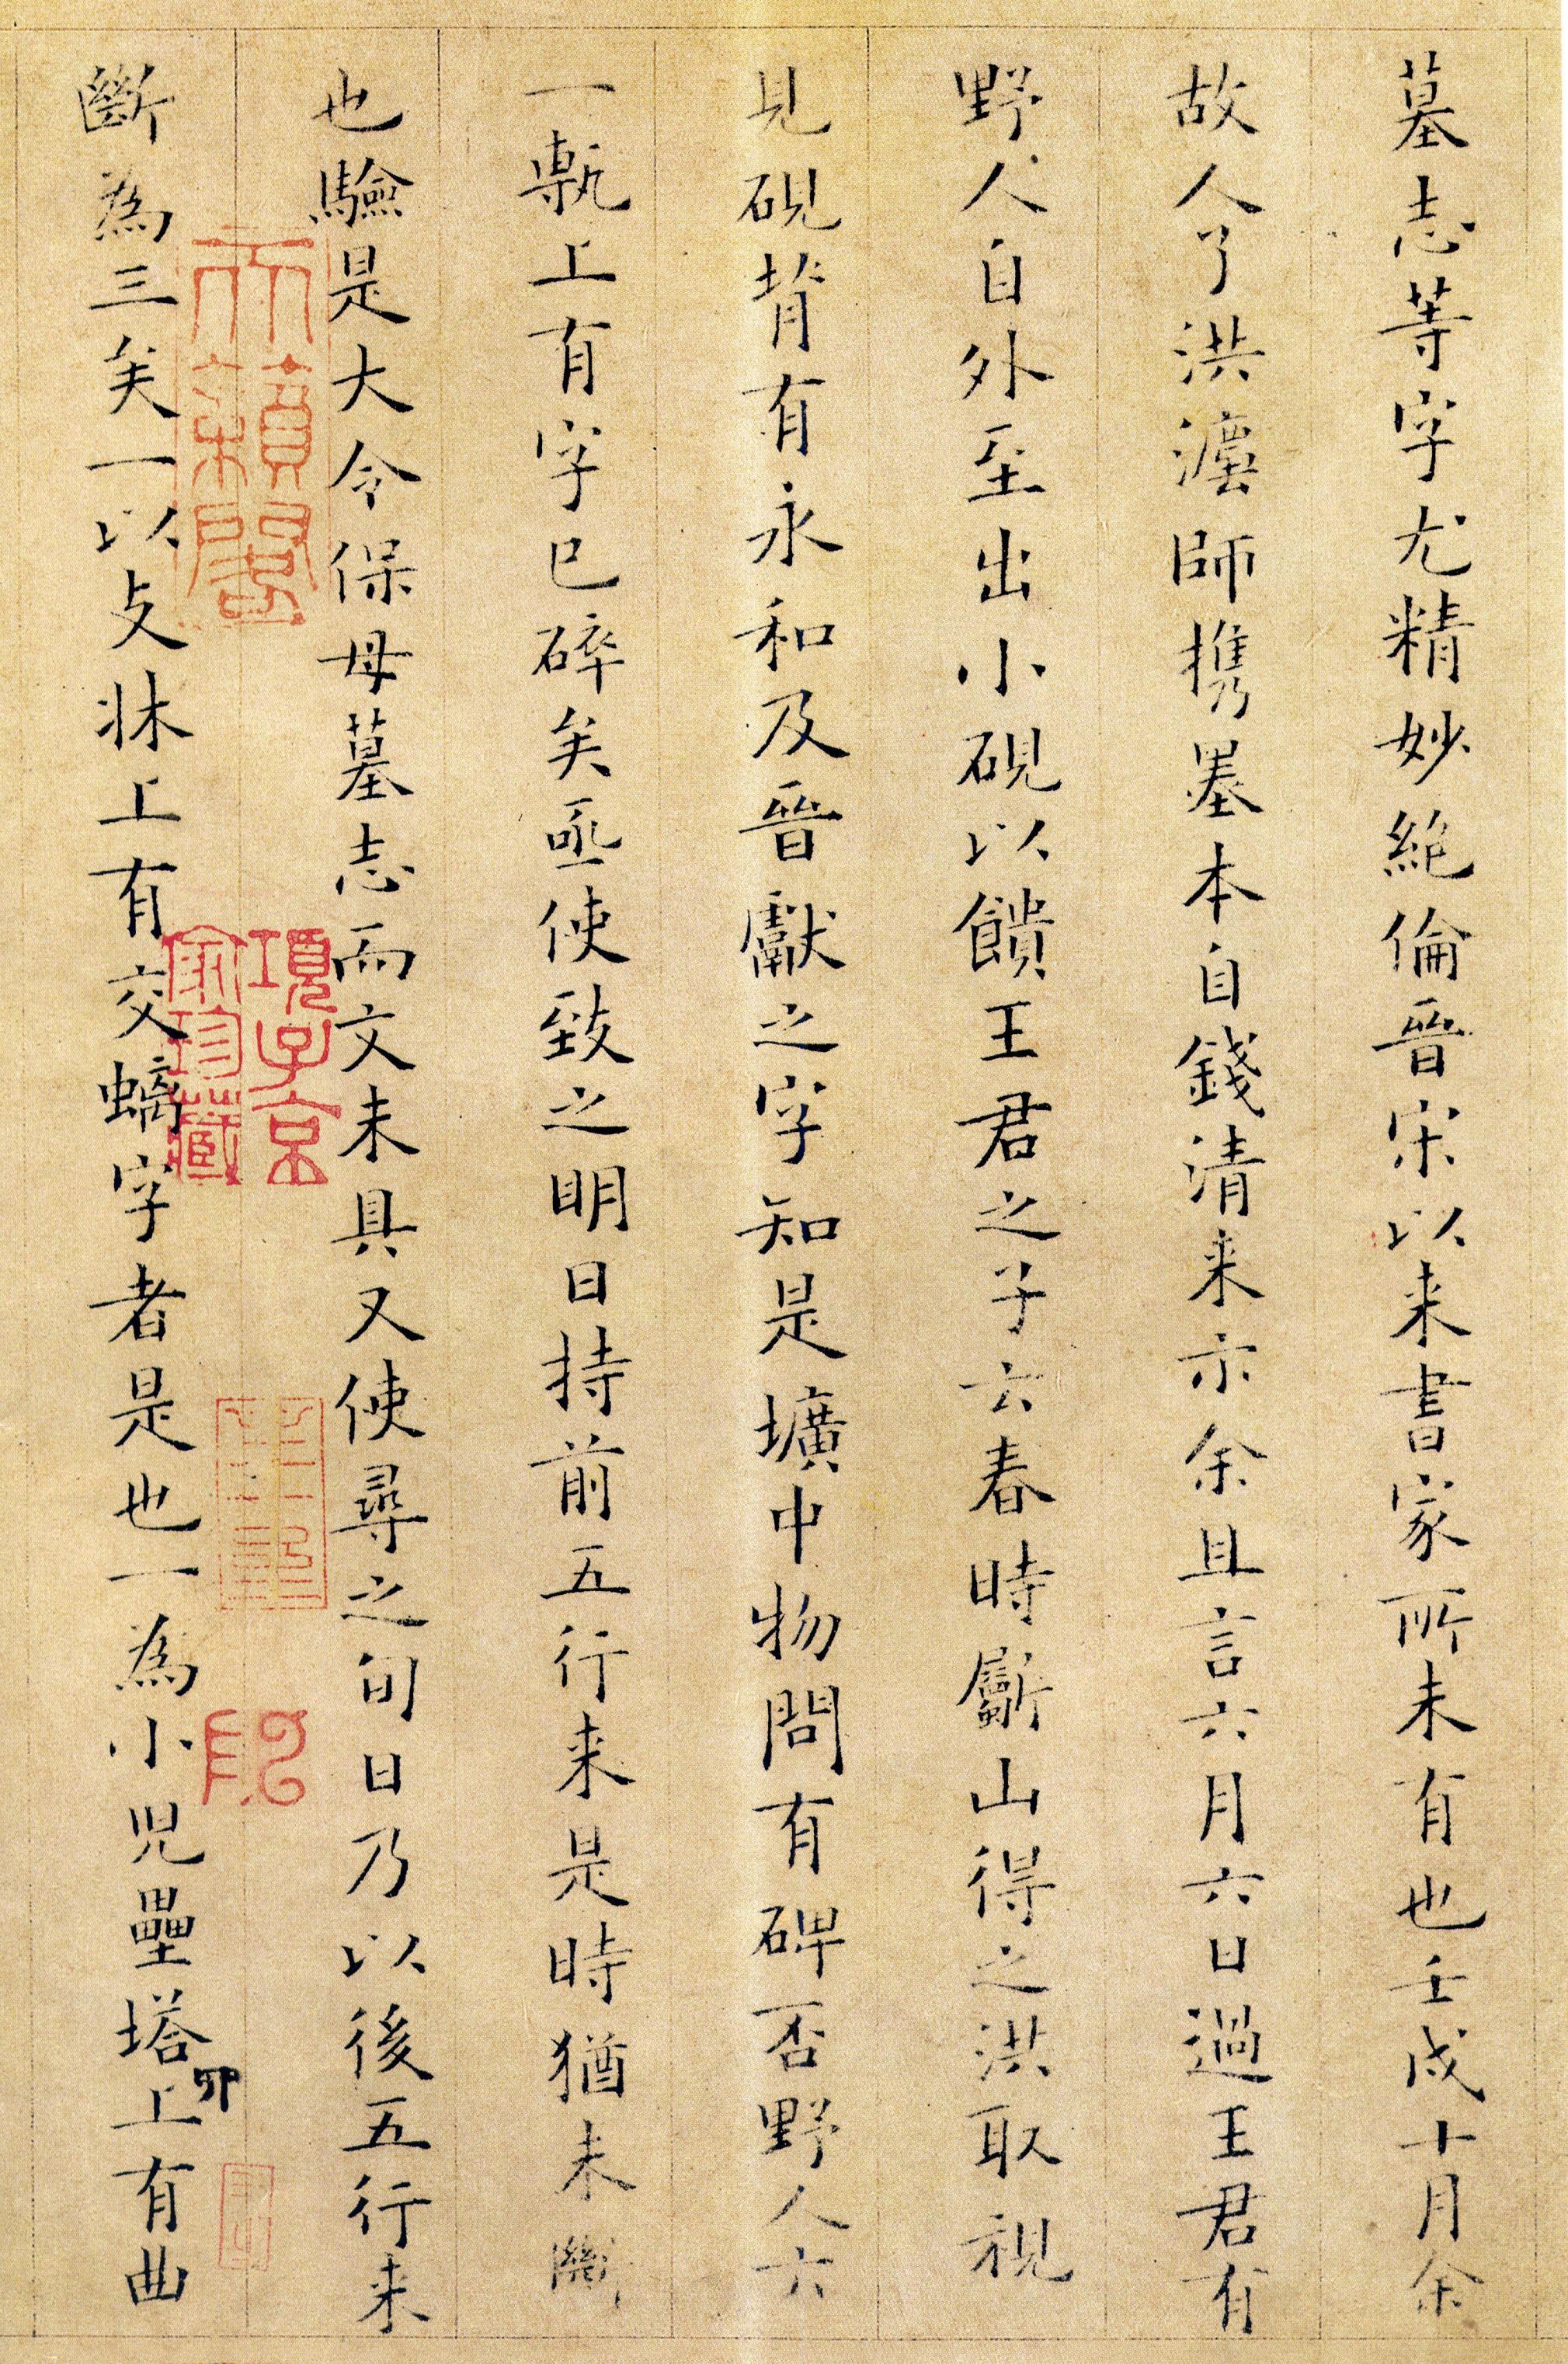 墓志等字尤精妙絶倫晉宋以来書家所未有也壬戌十月余
故人了洪灋師携墨本自錢清来示余且言六月六日過王君有
野人自外至出小硯以饋王君之子云春時斸山得之洪取視
見硯背有永和及晉獻之字知是壙中物問有碑否野人云
一甎上有字已碎矣亟使致之明日持前五行来是時猶未斷
也驗是大令保母墓志而文未具又使尋之旬日乃以後五行来
斷為三矣一以支牀上有交螭字者是也一為小児壘塔上有曲
項子京
家珍藏
天籟閣
卯